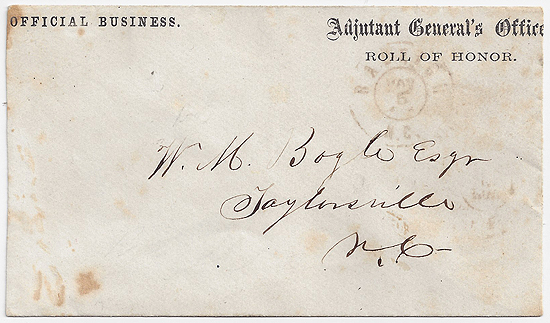 OFFICIAL BUSINESS.
Adjutant General's Office
ROLL OF HONOR.
W. M. Bogle Esqr
Taylorsville
N.C